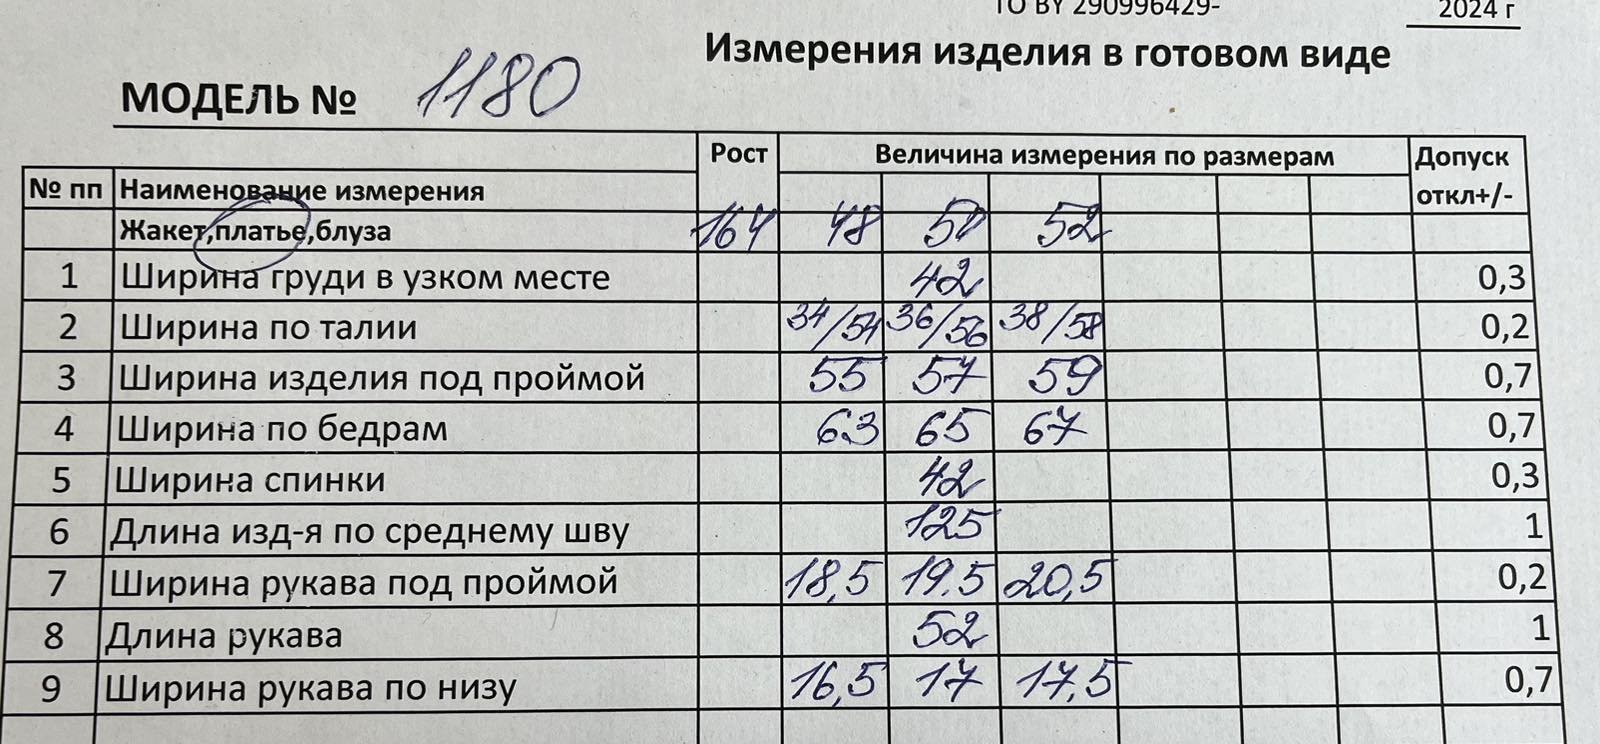 ТО BY 290996429-
2024 г
Измерения изделия в готовом виде
МОДЕЛЬ № 1180
Рост Величина измерения по размерам Допуск откл+/-
№ пп Наименование измерения
Жакет,платье,блуза 164 48 50 52
1 Ширина груди в узком месте 42 0,3
2 Ширина по талии 34/54 36/56 38/58 0,2
3 Ширина изделия под проймой 55 57 59 0,7
4 Ширина по бедрам 63 65 67 0,7
5 Ширина спинки 42 0,3
6 Длина изд-я по среднему шву 125 1
7 Ширина рукава под проймой 18,5 19,5 20,5 0,2
8 Длина рукава 52 1
9 Ширина рукава по низу 16,5 17 17,5 0,7